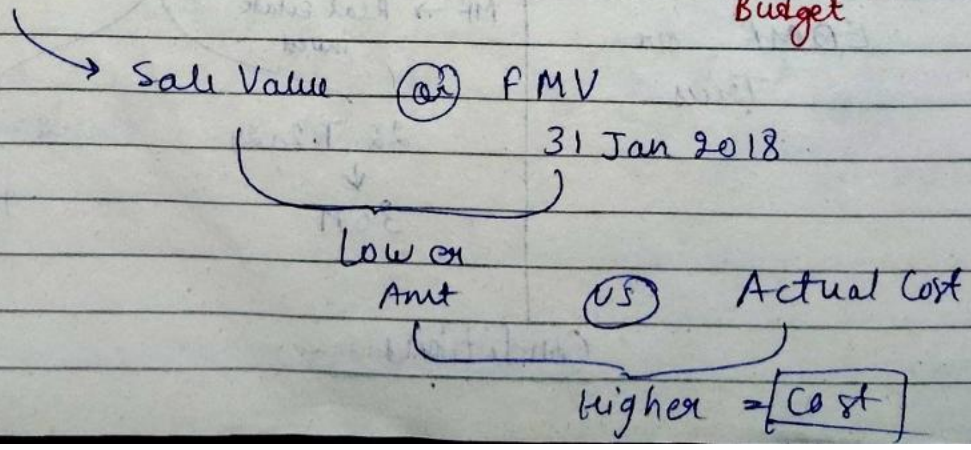 Budget
Sale Value or FMV
31 Jan 2018
Lower
Amt VS Actual Cost
Higher = Cost